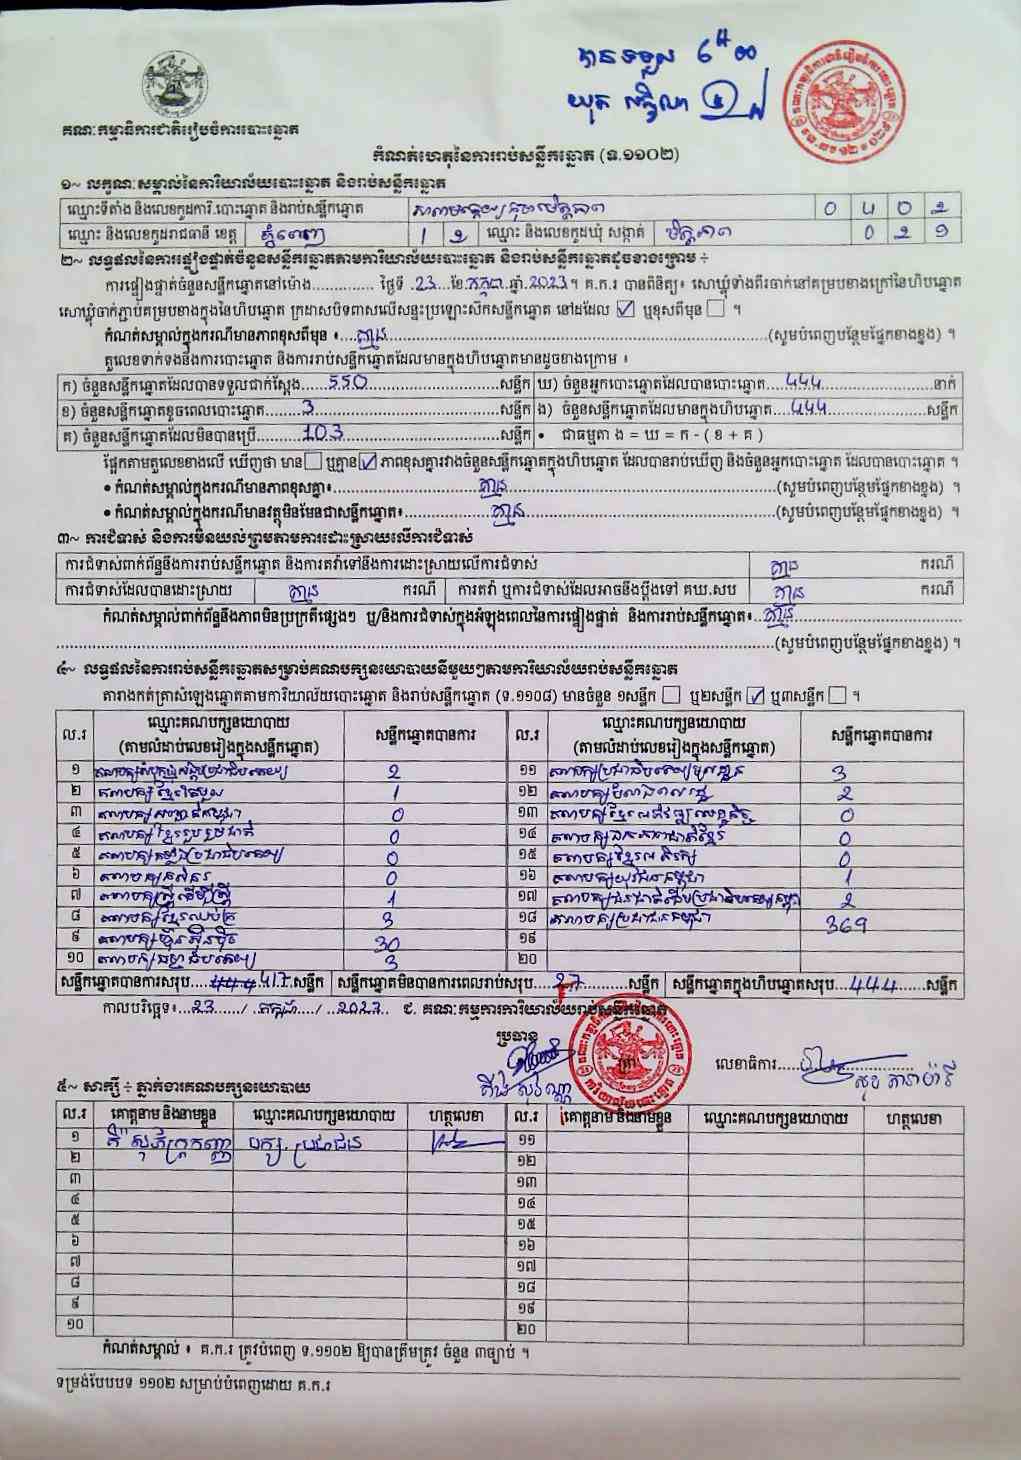 បានទទួល
គណៈកម្មាធិការជាតិរៀបចំការបោះឆ្នោត
កំណត់ហេតុនៃការរាប់សន្លឹកឆ្នោត (ទ.១១០២)
១~ លក្ខណៈសម្គាល់នៃការិយាល័យបោះឆ្នោត និងរាប់សន្លឹកឆ្នោត
ឈ្មោះទីតាំង និងលេខកូដការិ.បោះឆ្នោត និងរាប់សន្លឹកឆ្នោត 0 4 0 2
ឈ្មោះ និងលេខកូដរាជធានី ខេត្ត ភ្នំពេញ 1 2 ឈ្មោះ និងលេខកូដឃុំ សង្កាត់ មិត្តភាព 0 2 1
២~ លទ្ធផលនៃការផ្ទៀងផ្ទាត់ចំនួនសន្លឹកឆ្នោតតាមការិយាល័យបោះឆ្នោត និងរាប់សន្លឹកឆ្នោតដូចខាងក្រោម ÷
ការផ្ទៀងផ្ទាត់ចំនួនសន្លឹកឆ្នោតនៅម៉ោង............... ថ្ងៃទី .23...ខែ.កក្កដា.ឆ្នាំ.2023.។ គ.ក.រ បានពិនិត្យ៖ សោឃ្លុំទាំងពីរចាក់នៅគម្របខាងក្រៅនៃហិបឆ្នោត
សោឃ្លុំចាក់ភ្ជាប់គម្របខាងក្នុងនៃហិបឆ្នោត ក្រដាសបិទពាសលើសន្ទះប្រឡោះសឹកសន្លឹកឆ្នោត នៅដដែល ☑ ឬខុសពីមុន ☐ ។
កំណត់សម្គាល់ក្នុងករណីមានភាពខុសពីមុន ៖...គ្មាន...(សូមបំពេញបន្ថែមផ្នែកខាងខ្នង) ។
តួលេខទាក់ទងនឹងការបោះឆ្នោត និងការរាប់សន្លឹកឆ្នោតដែលមានក្នុងហិបឆ្នោតមានដូចខាងក្រោម ៖
ក) ចំនួនសន្លឹកឆ្នោតដែលបានទទួលជាក់ស្តែង.....550.....សន្លឹក ឃ) ចំនួនអ្នកបោះឆ្នោតដែលបានបោះឆ្នោត....444....នាក់
ខ) ចំនួនសន្លឹកឆ្នោតខូចពេលបោះឆ្នោត.....3.....សន្លឹក ង) ចំនួនសន្លឹកឆ្នោតដែលមានក្នុងហិបឆ្នោត....444....សន្លឹក
គ) ចំនួនសន្លឹកឆ្នោតដែលមិនបានប្រើ.....103.....សន្លឹក • ជាធម្មតា ង = ឃ = ក - ( ខ + គ )
ផ្អែកតាមតួលេខខាងលើ ឃើញថា មាន ☐ ឬគ្មាន ☑ ភាពខុសគ្នារវាងចំនួនសន្លឹកឆ្នោតក្នុងហិបឆ្នោត ដែលបានរាប់ឃើញ និងចំនួនអ្នកបោះឆ្នោត ដែលបានបោះឆ្នោត ។
• កំណត់សម្គាល់ក្នុងករណីមានភាពខុសគ្នា៖.....គ្មាន.....(សូមបំពេញបន្ថែមផ្នែកខាងខ្នង) ។
• កំណត់សម្គាល់ក្នុងករណីមានវត្ថុមិនមែនជាសន្លឹកឆ្នោត៖.....គ្មាន.....(សូមបំពេញបន្ថែមផ្នែកខាងខ្នង) ។
៣~ ការជំទាស់ និងការមិនយល់ព្រមតាមការដោះស្រាយលើការជំទាស់
ការជំទាស់ពាក់ព័ន្ធនឹងការរាប់សន្លឹកឆ្នោត និងការតវ៉ាទៅនឹងការដោះស្រាយលើការជំទាស់ គ្មាន ករណី
ការជំទាស់ដែលបានដោះស្រាយ គ្មាន ករណី ការតវ៉ា ឬការជំទាស់ដែលអាចនឹងប្តឹងទៅ គឃ.សប គ្មាន ករណី
កំណត់សម្គាល់ពាក់ព័ន្ធនឹងភាពមិនប្រក្រតីផ្សេងៗ ឬ/និងការជំទាស់ក្នុងអំឡុងពេលនៃការផ្ទៀងផ្ទាត់ និងការរាប់សន្លឹកឆ្នោត៖...គ្មាន...
(សូមបំពេញបន្ថែមផ្នែកខាងខ្នង) ។
៤~ លទ្ធផលនៃការរាប់សន្លឹកឆ្នោតសម្រាប់គណបក្សនយោបាយនីមួយៗតាមការិយាល័យរាប់សន្លឹកឆ្នោត
តារាងកត់ត្រាសំឡេងឆ្នោតតាមការិយាល័យបោះឆ្នោត និងរាប់សន្លឹកឆ្នោត (ទ.១១០៨) មានចំនួន ១សន្លឹក ☐ ឬ២សន្លឹក ☑ ឬ៣សន្លឹក ☐ ។
ល.រ ឈ្មោះគណបក្សនយោបាយ (តាមលំដាប់លេខរៀងក្នុងសន្លឹកឆ្នោត) សន្លឹកឆ្នោតបានការ ល.រ ឈ្មោះគណបក្សនយោបាយ (តាមលំដាប់លេខរៀងក្នុងសន្លឹកឆ្នោត) សន្លឹកឆ្នោតបានការ
១ 2 ១១ 3
២ គណបក្សខ្មែរតែមួយ 1 ១២ 2
៣ 0 ១៣ 0
៤ គណបក្សខ្មែររួបរួមជាតិ 0 ១៤ គណបក្សឯកភាពជាតិខ្មែរ 0
៥ 0 ១៥ គណបក្សខ្មែរអភិរក្ស 0
៦ 0 ១៦ គណបក្សយុវជនកម្ពុជា 1
៧ គណបក្សស្ត្រីដើម្បីស្ត្រី 1 ១៧ 2
៨ គណបក្សខ្មែរឈប់ក្រ 3 ១៨ គណបក្សប្រជាជនកម្ពុជា 369
៩ គណបក្សហ៊្វុនស៊ិនប៉ិច 30 ១៩
១០ គណបក្សធម្មាធិបតេយ្យ 3 ២០
សន្លឹកឆ្នោតបានការសរុប...417.សន្លឹក សន្លឹកឆ្នោតមិនបានការពេលរាប់សរុប...27...សន្លឹក សន្លឹកឆ្នោតក្នុងហិបឆ្នោតសរុប...444...សន្លឹក
កាលបរិច្ឆេទ៖...23...../...កក្កដា.../...2023... ជ. គណៈកម្មការការិយាល័យរាប់សន្លឹកឆ្នោត
ប្រធាន
លេខាធិការ
៥~ សាក្សី ÷ ភ្នាក់ងារគណបក្សនយោបាយ
ល.រ គោត្តនាម និងនាមខ្លួន ឈ្មោះគណបក្សនយោបាយ ហត្ថលេខា ល.រ គោត្តនាម និងនាមខ្លួន ឈ្មោះគណបក្សនយោបាយ ហត្ថលេខា
១ បក្ស.ប្រជាជន ១១
២ ១២
៣ ១៣
៤ ១៤
៥ ១៥
៦ ១៦
៧ ១៧
៨ ១៨
៩ ១៩
១០ ២០
កំណត់សម្គាល់ ៖ គ.ក.រ ត្រូវបំពេញ ទ.១១០២ ឱ្យបានត្រឹមត្រូវ ចំនួន ៣ច្បាប់ ។
ទម្រង់បែបបទ ១១០២ សម្រាប់បំពេញដោយ គ.ក.រ